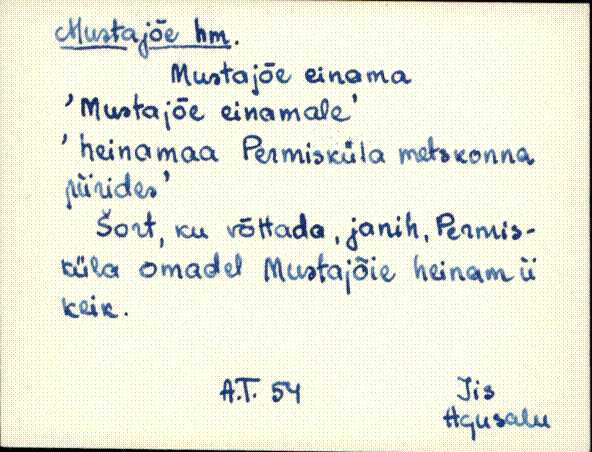 Mustajõe hm.
Mustajõe einama
'Mustajõe einamale'
'heinamaa Permisküla metskonna
piirides'
Šort, ku võttada, janih, Permis-
küla omadel Mustajõie heinam ü
keik.
A.T. 54
Jis
Agusalu